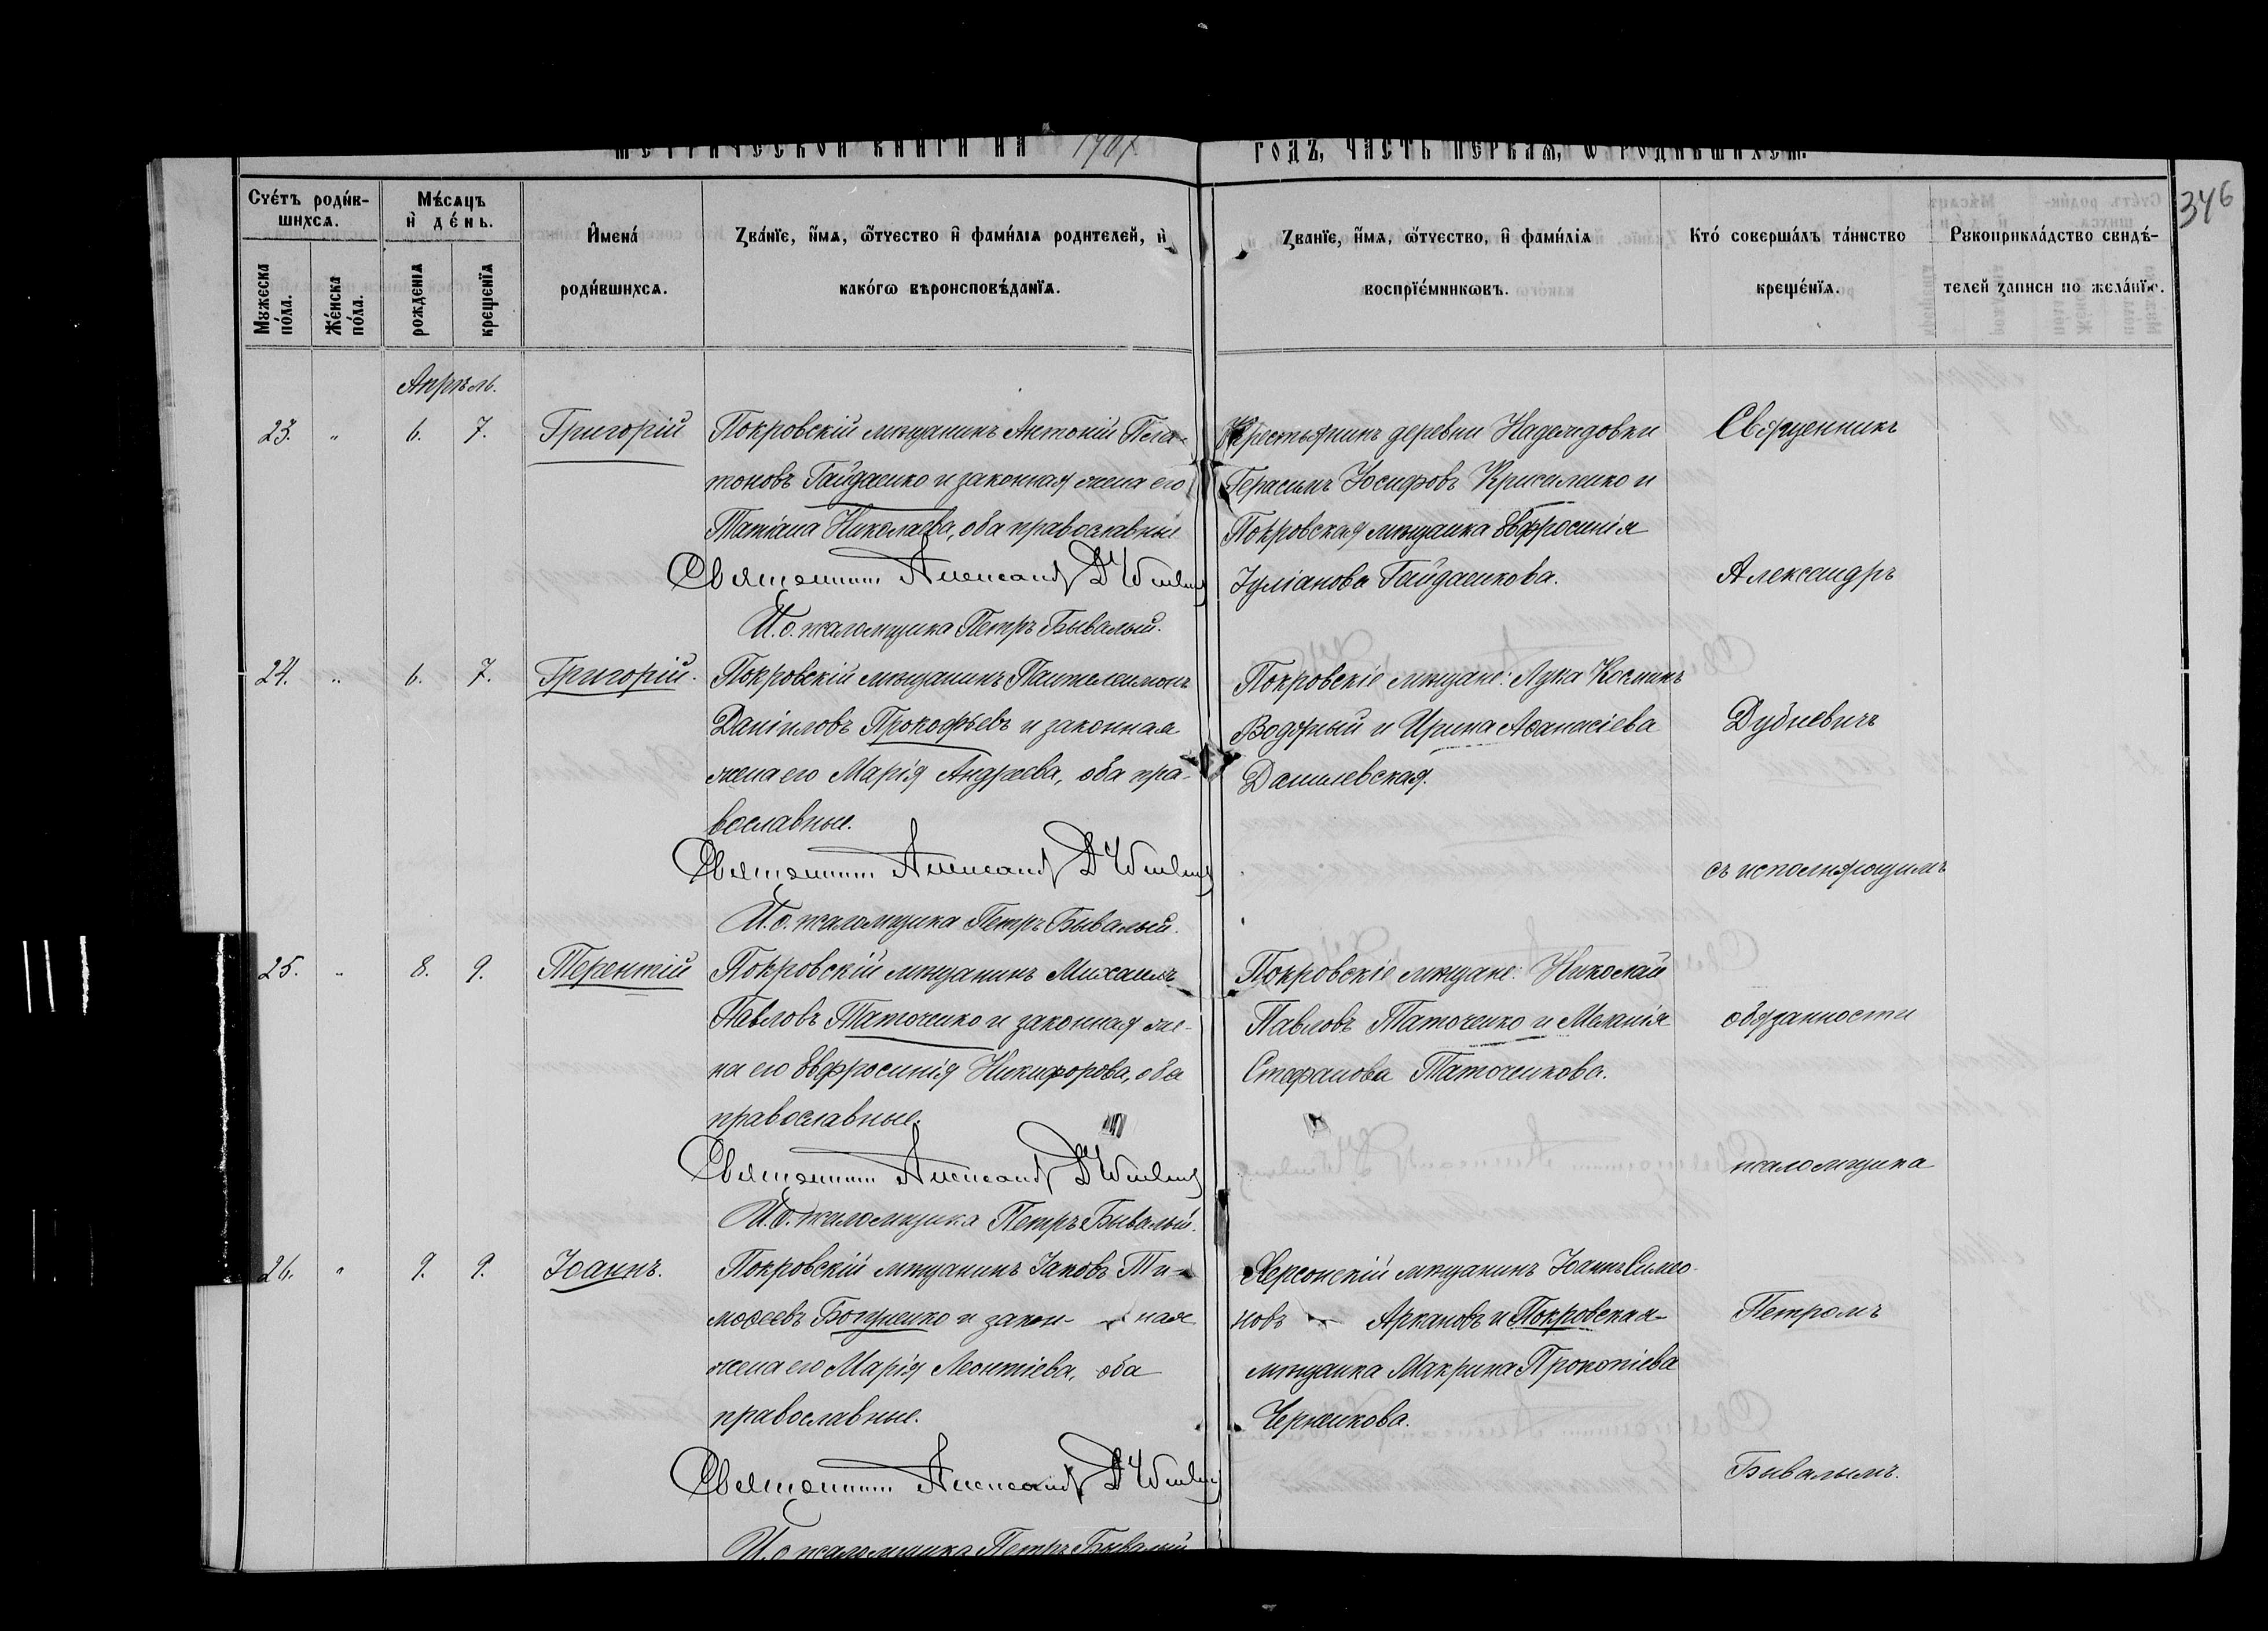 МЕТРИЧЕСКОЙ КНИГИ НА 190
ГОДЪ, ЧАСТЬ ПЕРВАЯ, Ѡ РОДИВШИХСЯ.
346
Счéтъ роди́в-
шихсѧ.
Мꙋжеска
по́ла.
Же́нска
по́ла.
Мѣ́сѧцъ
и҆ де́нь.
рожденїѧ
крещенїѧ
И҆мена́
роди́вшихсѧ.
Ꙁва́нїе, и҆́мѧ, ѻ҆́тчество и҆ фами́лїѧ родителей, и҆
како́гѡ вѣроисповѣ́данїѧ.
Ꙁванїе, и҆́мѧ, ѻ҆́тчество, и҆ фами́лїѧ
воспрїе́мникѡвъ.
Кто́ соверша́лъ та́инство
креще́нїѧ.
Рꙋкоприкла́дство свидѣ́-
телей ꙁаписи по жела́нїю.
Апрѣль.
23. " 6. 7. Григорій
Покровскій мѣщанинъ Антоній Пла-
тоновъ Гайдаенко и законная жена его
Татіана Николаева, оба православные
Священникъ Александръ Дубневичъ
И. о. псаломщика Петръ Бывалый.
Крестьянинъ деревни Надеждовки
Герасимъ Іосифовъ Крисаленко и
Покровская мѣщанка Евфросинія
Іуліанова Гайдаенкова.
24. " 6. 7. Григорій.
Покровскій мѣщанинъ Пантелеимонъ
Даніиловъ Прокофьевъ и законная
жена его Марія Андреева, оба пра-
вославные.
Священникъ Александръ Дубневичъ
И. о. псаломщика Петръ Бывалый.
Покровскіе мѣщане: Лука Косминъ
Водяный и Ирина Аѳанасіева
Данилевская.
25. " 8. 9. Терентій
Покровскій мѣщанинъ Михаилъ
Павловъ Таточенко и законная же-
на его Евфросинія Никифорова, оба
православные.
Священникъ Александръ Дубневичъ
И. о. псаломщика Петръ Бывалый.
Покровскіе мѣщане: Николай
Павловъ Таточенко и Меланія
Стефанова Таточенкова.
26. " 9. 9. Іоаннъ.
Покровскій мѣщанинъ Іаковъ Ти-
моѳеевъ Богуненко и закон- ная
жена его Марія Леонтіева, оба
православные.
Священникъ Александръ Дубневичъ
И. о. псаломщика Петръ Бывалый
Херсонскій мѣщанинъ Іоаннъ Симео-
новъ Аркановъ и Покровская
мѣщанка Макрина Прокопіева
Черненкова.
Священникъ
Александръ
Дубневичъ
съ исполняющимъ
обязанности
псаломщика
Петромъ
Бывалымъ.